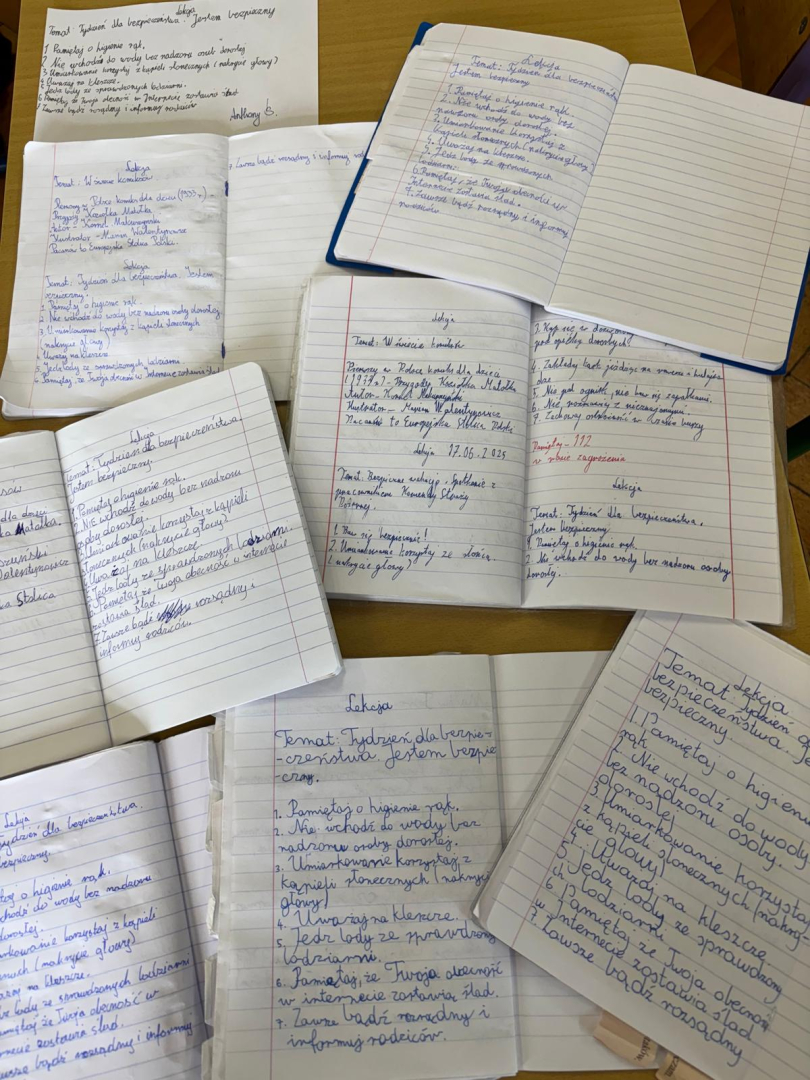 Lekcja
Temat: Tydzień dla bezpieczeństwa. Jestem bezpieczny
1 Pamiętaj o higienie rąk.
2 Nie wchodź do wody bez nadzoru osób dorosłej
3 Umiarkowanie korzystaj z kąpieli słonecznych (nakrycie głowy)
4 Uważaj na kleszcze.
5 Jedz lody ze sprawdzonych lodziarni.
6 Pamiętaj że Twoja obecność w Internecie zostawia ślad
7 Zawsze bądź rozsądny i informuj rodziców
Anthony B.
Lekcja
Temat: W świecie komiksów
Pierwszy w Polsce komiks dla dzieci
Przygody Koziołka Matołka
Autor - Kornel Makuszyński
Ilustrator - Marian Walentynowicz
Pacanów to Europejska Stolica Bajki.
Lekcja
Temat: Tydzień dla bezpieczeństwa. Jestem
bezpieczny.
1. Pamiętaj o higienie rąk.
2. Nie wchodź do wody bez nadzoru osoby dorosłej
3. Umiarkowanie korzystaj z kąpieli słonecznych
(nakrycie głowy)
4. Uważaj na kleszcze
5. Jedz lody ze sprawdzonych lodziarni.
6. Pamiętaj, że Twoja obecność w Internecie zostawia ślad
7. Zawsze bądź rozsądny i informuj
Lekcja
Temat: Tydzień dla bezpieczeństwa
Jestem bezpieczny
1. Pamiętaj o higienie rąk.
2. Nie wchodź do wody bez
nadzoru osoby dorosłej
3. Umiarkowanie korzystaj z
kąpieli słonecznych (nakrycie głowy)
4. Uważaj na kleszcze.
5. Jedz lody ze sprawdzonych
lodziarni.
6. Pamiętaj, że Twoja obecność w
Internecie zostawia ślad.
7. Zawsze bądź rozsądny i informuj
rodziców.
Lekcja
Temat: W świecie komiksów
Pierwszy w Polsce komiks dla dzieci
Przygody Koziołka Matołka
Autor - Kornel Makuszyński
Ilustrator - Marian Walentynowicz
Pacanów to Europejska Stolica
Lekcja 17.06.2025
Temat: Bezpieczne wakacje. Spotkanie z
pracownikiem Komendy Straży
Pożarnej.
1. Baw się bezpiecznie!
2. Umiarkowanie korzystaj ze słońca.
głowy)
3. Kąp się w
pod opieką dorosłych.
4. Zakładaj kask jeżdżąc na rowerze i hulajno
dze
6. Nie rozmawiaj z nieznajomymi.
7. Zachowaj ostrożność w czasie burzy
Pamiętaj - 112
w razie zagrożenia
Lekcja
Temat: Tydzień dla bezpieczeństwa.
Jestem bezpieczny
1. Pamiętaj o higienie rąk.
2. Nie wchodź do wody bez nadzoru osoby
dorosłej.
dla dzieci
Matołka.
Stolica
Lekcja
Temat: Tydzień dla bezpieczeństwa.
Jestem bezpieczny.
Pamiętaj o higienie rąk.
2. Nie wchodź do wody bez nadzoru
osoby dorosłej.
Umiarkowanie korzystaj z kąpieli
słonecznych (nakrycie głowy)
Uważaj na kleszcze.
Jedz lody ze sprawdzonych
Pamiętaj że Twoja obecność w internecie
zostawia ślad.
7 Zawsze bądź rozsądny i
informuj rodziców.
Lekcja
Tydzień dla bezpieczeństwa.
bezpieczny.
o higienie rąk.
wchodź do wody bez nadzoru
dorosłej.
korzystaj z kąpieli
(nakrycie głowy)
na kleszcze.
lody ze sprawdzonych lodziarni
że Twoja obecność w
zostawia ślad.
bądź rozsądny i informuj
Lekcja
Temat: Tydzień dla bezpie-
-czeństwa Jestem bezpie
-czny.
1. Pamiętaj o higienie rąk.
2. Nie wchodź do wody bez
nadzoru osoby dorosłej.
3. Umiarkowanie korzystaj z
kąpieli słonecznych (nakrycie
głowy)
4. Uważaj na kleszcze.
5. Jedz lody ze sprawdzonej
lodziarni.
6. Pamiętaj, że Twoja obecność
w internecie zostawia ślad.
7. Zawsze bądź rozsądny i
informuj rodziców.
Lekcja
Temat: Tydzień
bezpieczeństwa.
bezpieczny
1. Pamiętaj o higienie
rąk
2. Nie wchodź do wody
bez nadzoru osoby.
dorosłej
3. Umiarkowanie korzystaj
z kąpieli słonecznych
głowy)
4. Uważaj na kleszcze
5. Jedz lody ze sprawdzony
ch lodziarni
6. Pamiętaj że Twoja obecność
w Internecie zostawia ślad
7. Zawsze bądź rozsądny